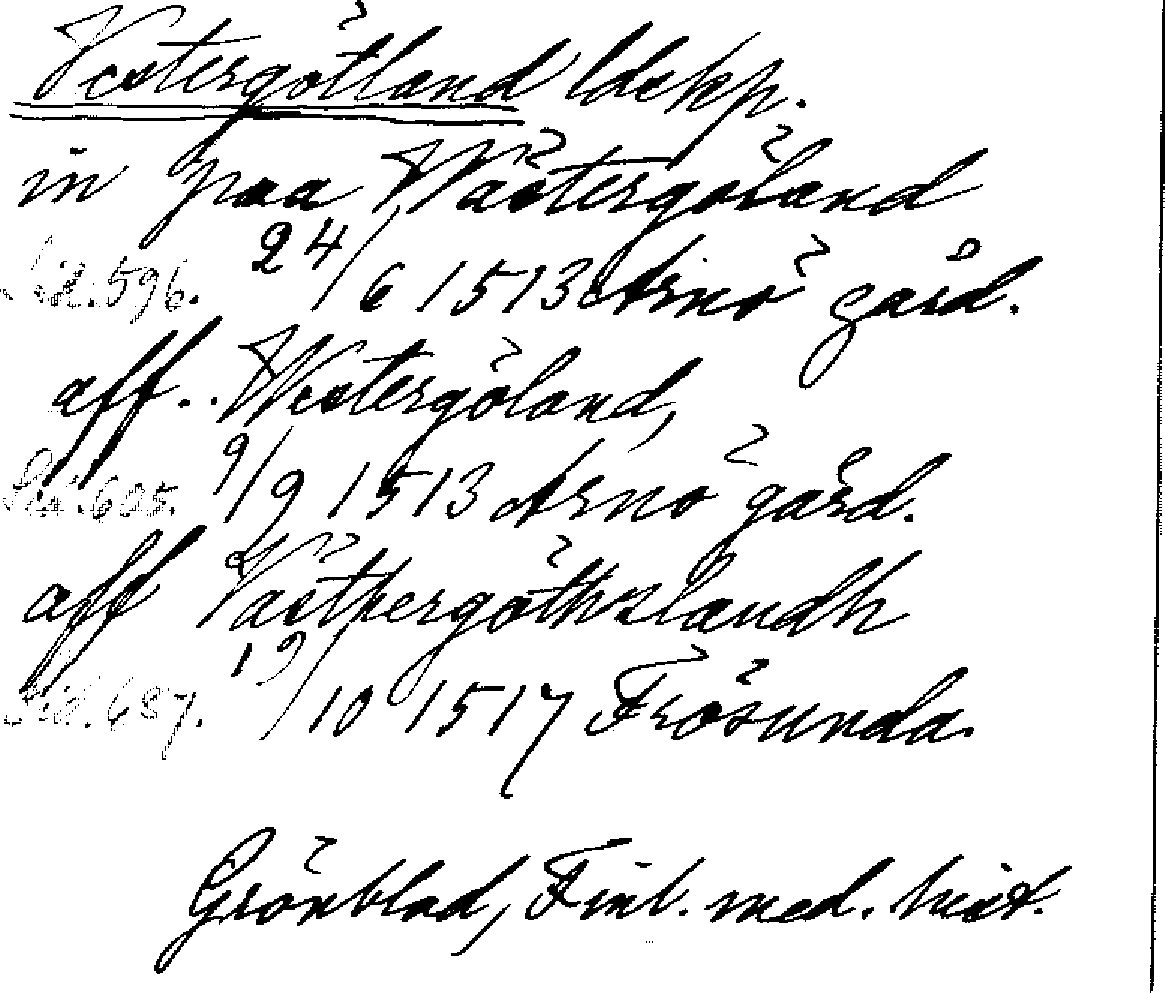 Vestergötland ldskp.
in paa Wästergöland
Sid. 596. 24/6 1513 Arnö gård.
aff.. Westergöland,
Sid. 605. 9/9 1513 Arnö gård.
aff Västhergöthslandh
Sid. 687. 19/10 1517 Frösunda.
Grönblad, Finl. med. hist.